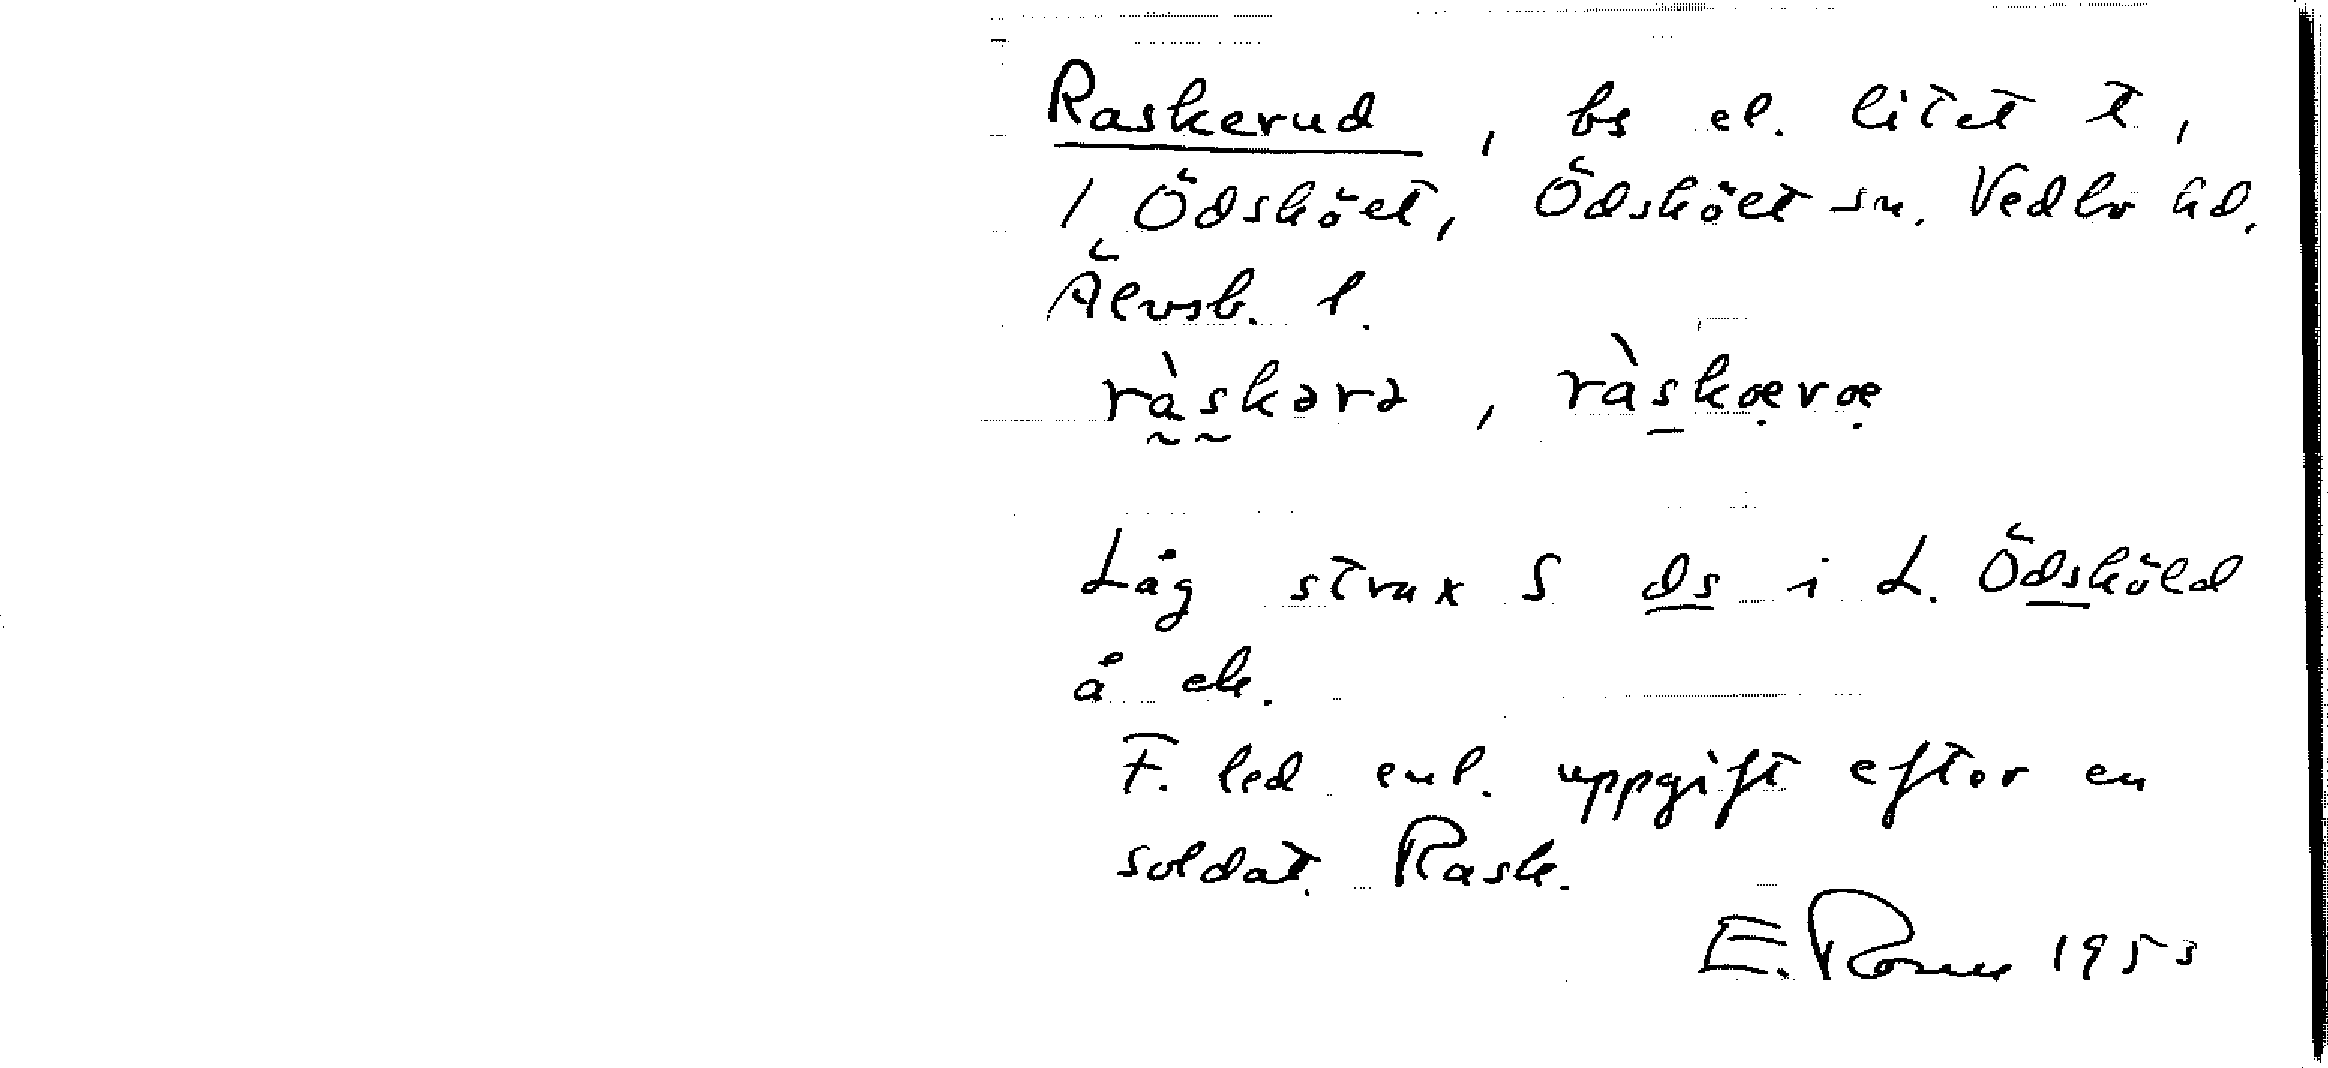 Raskerud, bs el. litet t,
1 Ödsköet, Ödsköet sn. Vedbo hd.
Älvsb. l.
ràskərə, ràskœrœ
Låg strax S ds i L. Ödsköld
å ek.
F. led enl. uppgift efter en
soldat Rask.
E. Rosen 1953